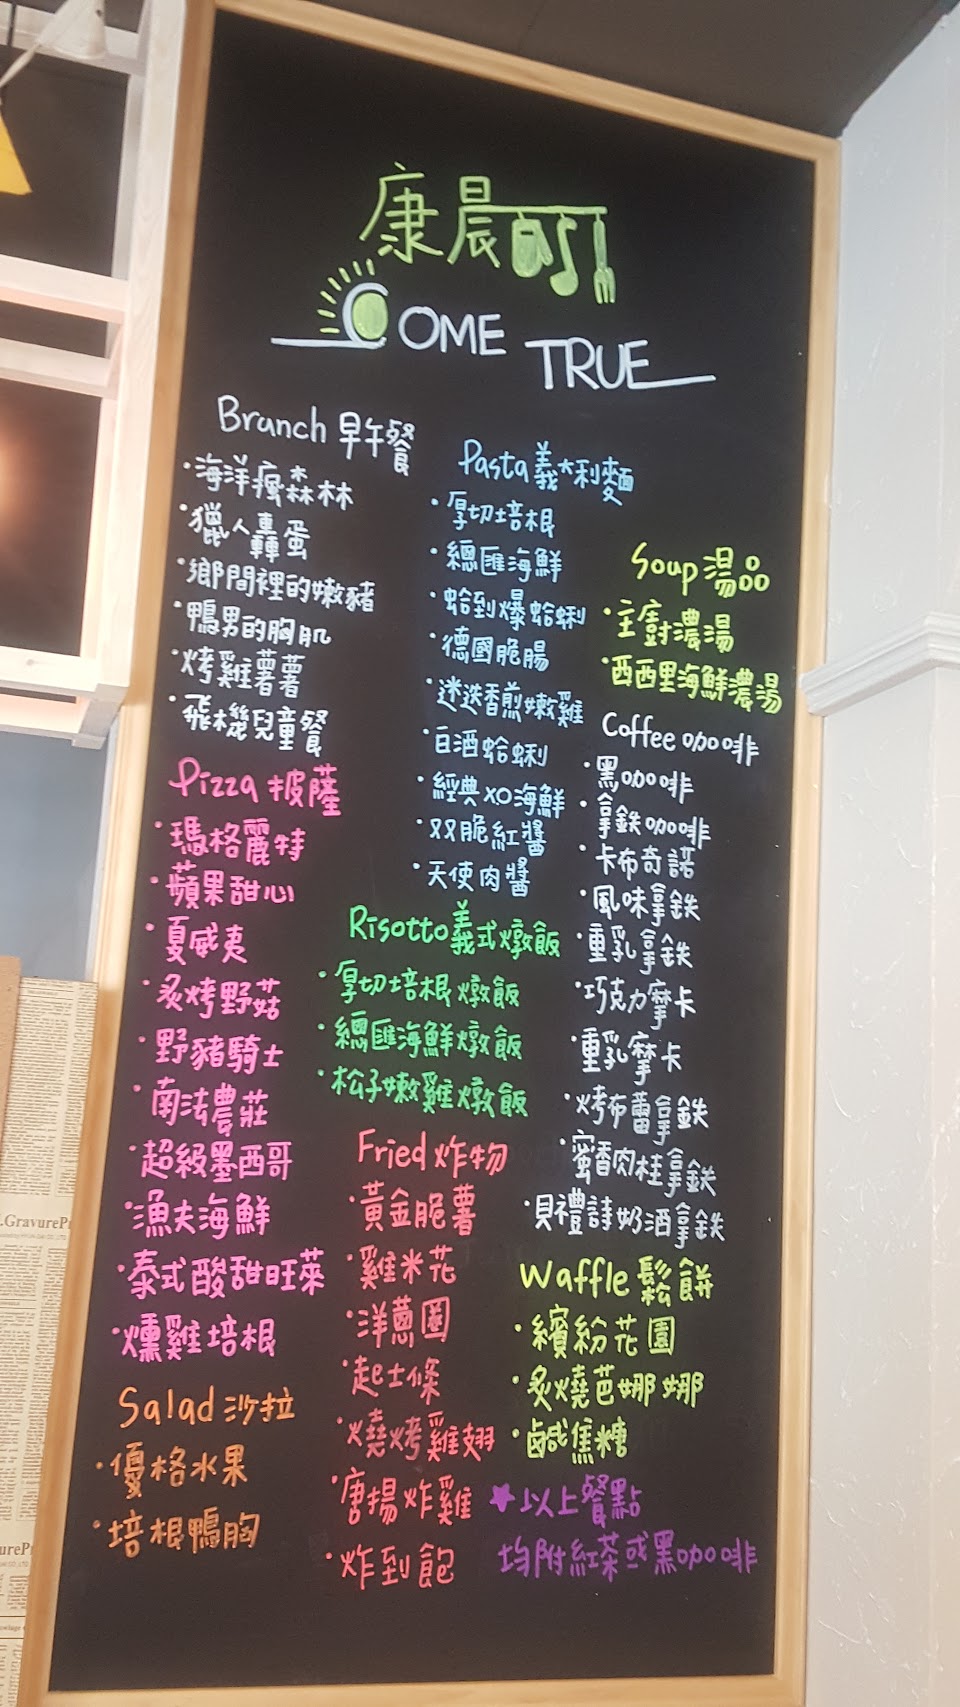 康晨
COME TRUE
Brunch 早午餐
·海洋瘋森林
·獵人轟蛋
·鄉間裡的嫩豬
·鴨男的胸肌
·烤雞薯薯
·飛機兒童餐
Pizza 披薩
·瑪格麗特
·蘋果甜心
·夏威夷
·炙烤野菇
·野豬騎士
·南法農莊
·超級墨西哥
·漁夫海鮮
·泰式酸甜旺萊
·燻雞培根
Salad 沙拉
·優格水果
·培根鴨胸
Pasta 義大利麵
·厚切培根
·總匯海鮮
·蛤到爆蛤蜊
·德國脆腸
·迷迭香煎嫩雞
·白酒蛤蜊
·經典XO海鮮
·双脆紅醬
·天使肉醬
Risotto 義式燉飯
·厚切培根燉飯
·總匯海鮮燉飯
·松子嫩雞燉飯
Fried 炸物
·黃金脆薯
·雞米花
·洋蔥圈
·起士條
·燒烤雞翅
·唐揚炸雞
·炸到飽
Soup 湯品
·主廚濃湯
·西西里海鮮濃湯
Coffee 咖啡
·黑咖啡
·拿鉄咖啡
·卡布奇諾
·風味拿鉄
·重乳拿鉄
·巧克力摩卡
·重乳摩卡
·烤布蕾拿鉄
·蜜香肉桂拿鉄
·貝禮詩奶酒拿鉄
Waffle 鬆餅
·繽紛花園
·炙燒芭娜娜
·鹹焦糖
★以上餐點
均附紅茶或黑咖啡